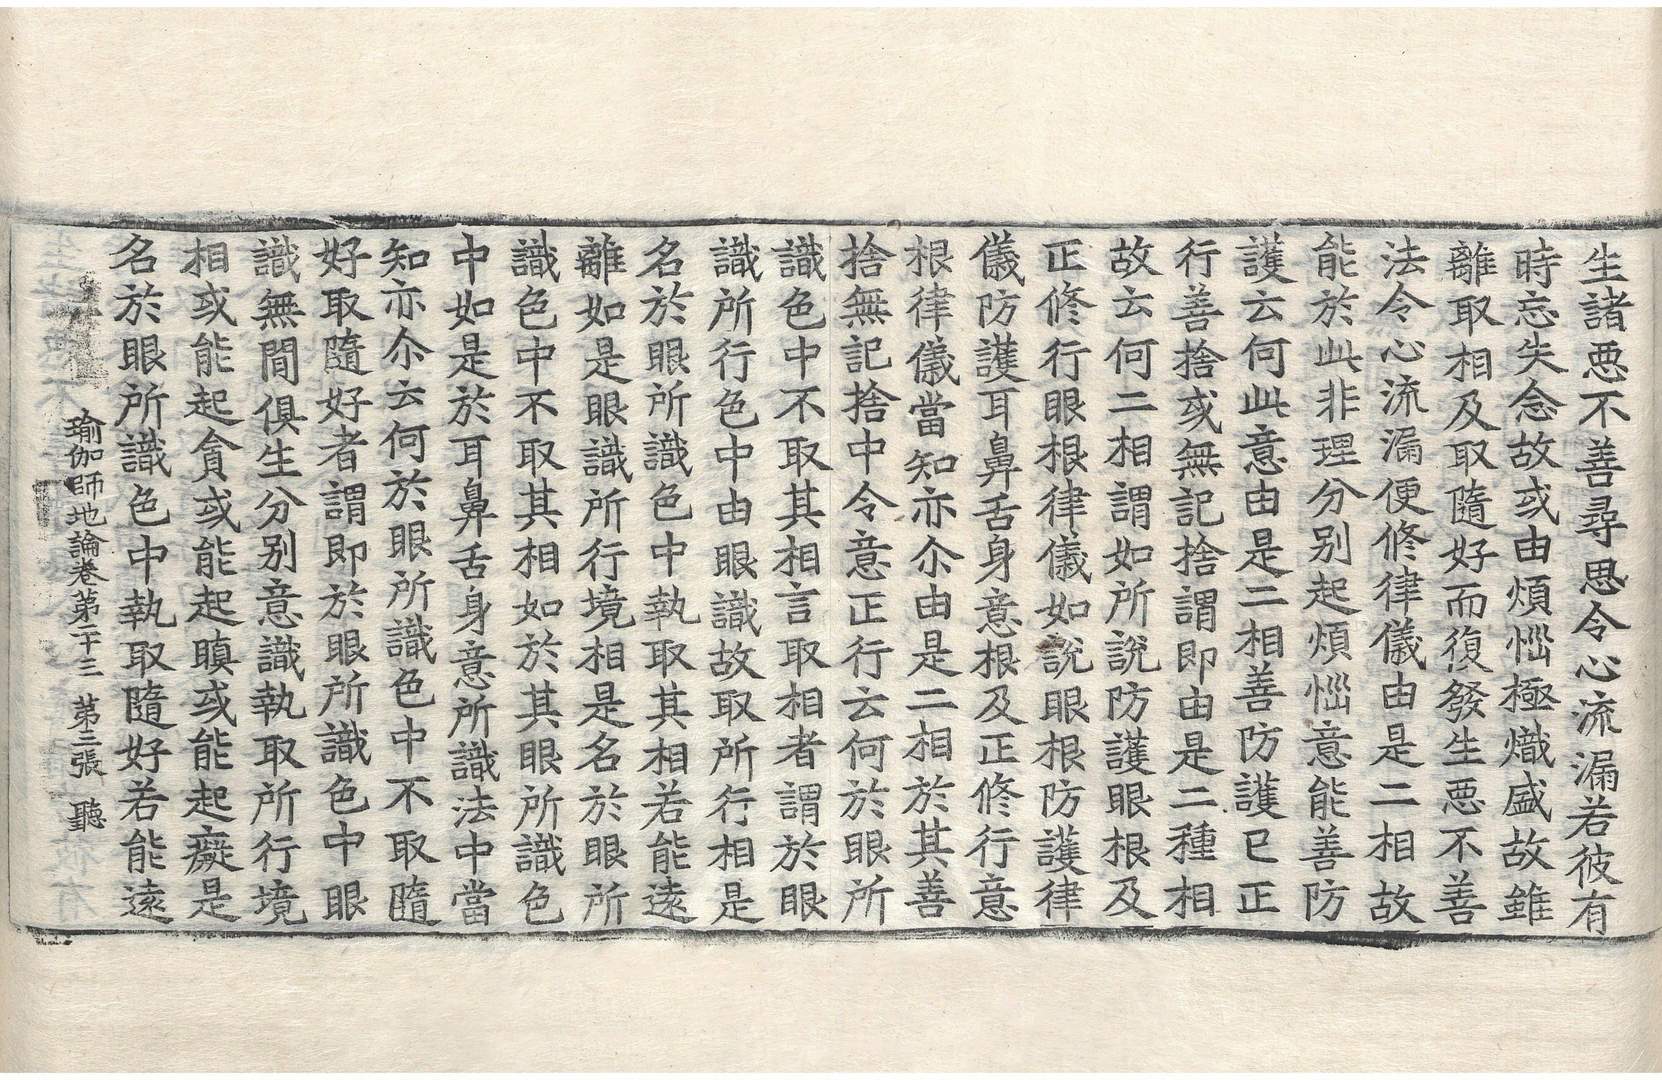 生諸悪不善尋思令心流漏若彼有
時忘失念故或由煩惱極熾盛故雖
離取相及取隨好而復發生悪不善
法令心流漏便修律儀由是二相故
能於此非理分別起煩惱意能善防
護云何此意由是二相善防護已正
行善捨或無記捨謂即由是二種相
故云何二相謂如所說防護眼根及
正修行眼根律儀如說眼根防護律
儀防護耳鼻舌身意根及正修行意
根律儀當知亦尒由是二相於其善
捨無記捨中令意正行云何於眼所
識色中不取其相言取相者謂於眼
識所行色中由眼識故取所行相是
名於眼所識色中執取其相若能遠
離如是眼識所行境相是名於眼所
識色中不取其相如於其眼所識色
中如是於耳鼻舌身意所識法中當
知亦尒云何於眼所識色中不取隨
好取隨好者謂即於眼所識色中眼
識無間俱生分別意識執取所行境
相或能起貪或能起瞋或能起癡是
名於眼所識色中執取隨好若能遠
瑜伽師地論卷第二十三 第三張 聽